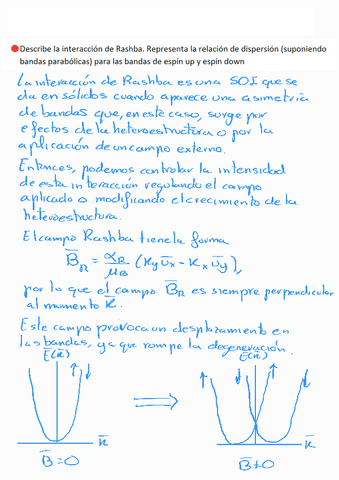 Describe la interacción de Rashba. Representa la relación de dispersión (suponiendo
bandas parabólicas) para las bandas de espín up y espín down
La interacción de Rashba es una SOI que se
da en sólidos cuando aparece una asimetría
de bandas que, en este caso, surge por
efectos de la heteroestructura o por la
aplicación de un campo externo.
Entonces, podemos controlar la intensidad
de esta interacción regulando el campo
aplicado o modificando el crecimiento de la
heteroestructura.
El campo Rashba tiene la forma
B̄_R = α_R/μ_B (k_y ū_x - k_x ū_y),
por lo que el campo B̄_R es siempre perpendicular
al momento k̄.
Este campo provoca un desplazamiento en
las bandas, ya que rompe la degeneración.
E(k̄) E(k̄)
↑ ↓ ↑ ↓
⇒
k̄ k̄
B̄=0 B̄≠0